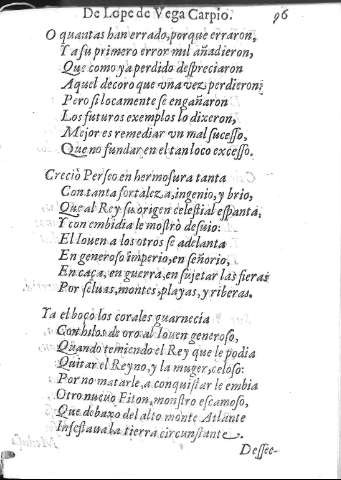 De Lope de Vega Carpio. 96
O quantas han errado, porque erraron,
Y a su primero error mil añadieron,
Que como ya perdido despreciaron
Aquel decoro que vna vez perdieron:
Pero si locamente se engañaron
Los futuros exemplos lo dixeron,
Mejor es remediar vn mal sucesso,
Que no fundar en el tan loco excesso.
Creciò Perseo en hermosura tanta
Con tanta fortaleza, ingenio, y brio,
Que al Rey su origen celestial espanta,
Y con embidia le mostrò desuio:
El Iouen a los otros se adelanta
En generoso imperio, en señorio,
En caça, en guerra, en sujetar las fieras
Por seluas, montes, playas, y riberas.
Ya el boço los corales guarnecia
Con hilos de oro al Iouen generoso,
Quando temiendo el Rey que le podia
Quitar el Reyno, y la muger, celoso:
Por no matarle, a conquistar le embia
Otro nueuo Fiton, monstro escamoso,
Que debaxo del alto monte Atlante
Infestaua la tierra circunstante.
Dessee-